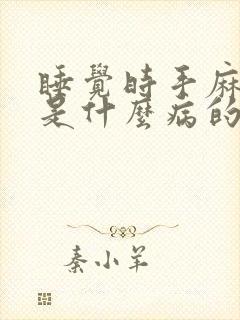 睡覺時手麻
是什麼病的
秦小羊